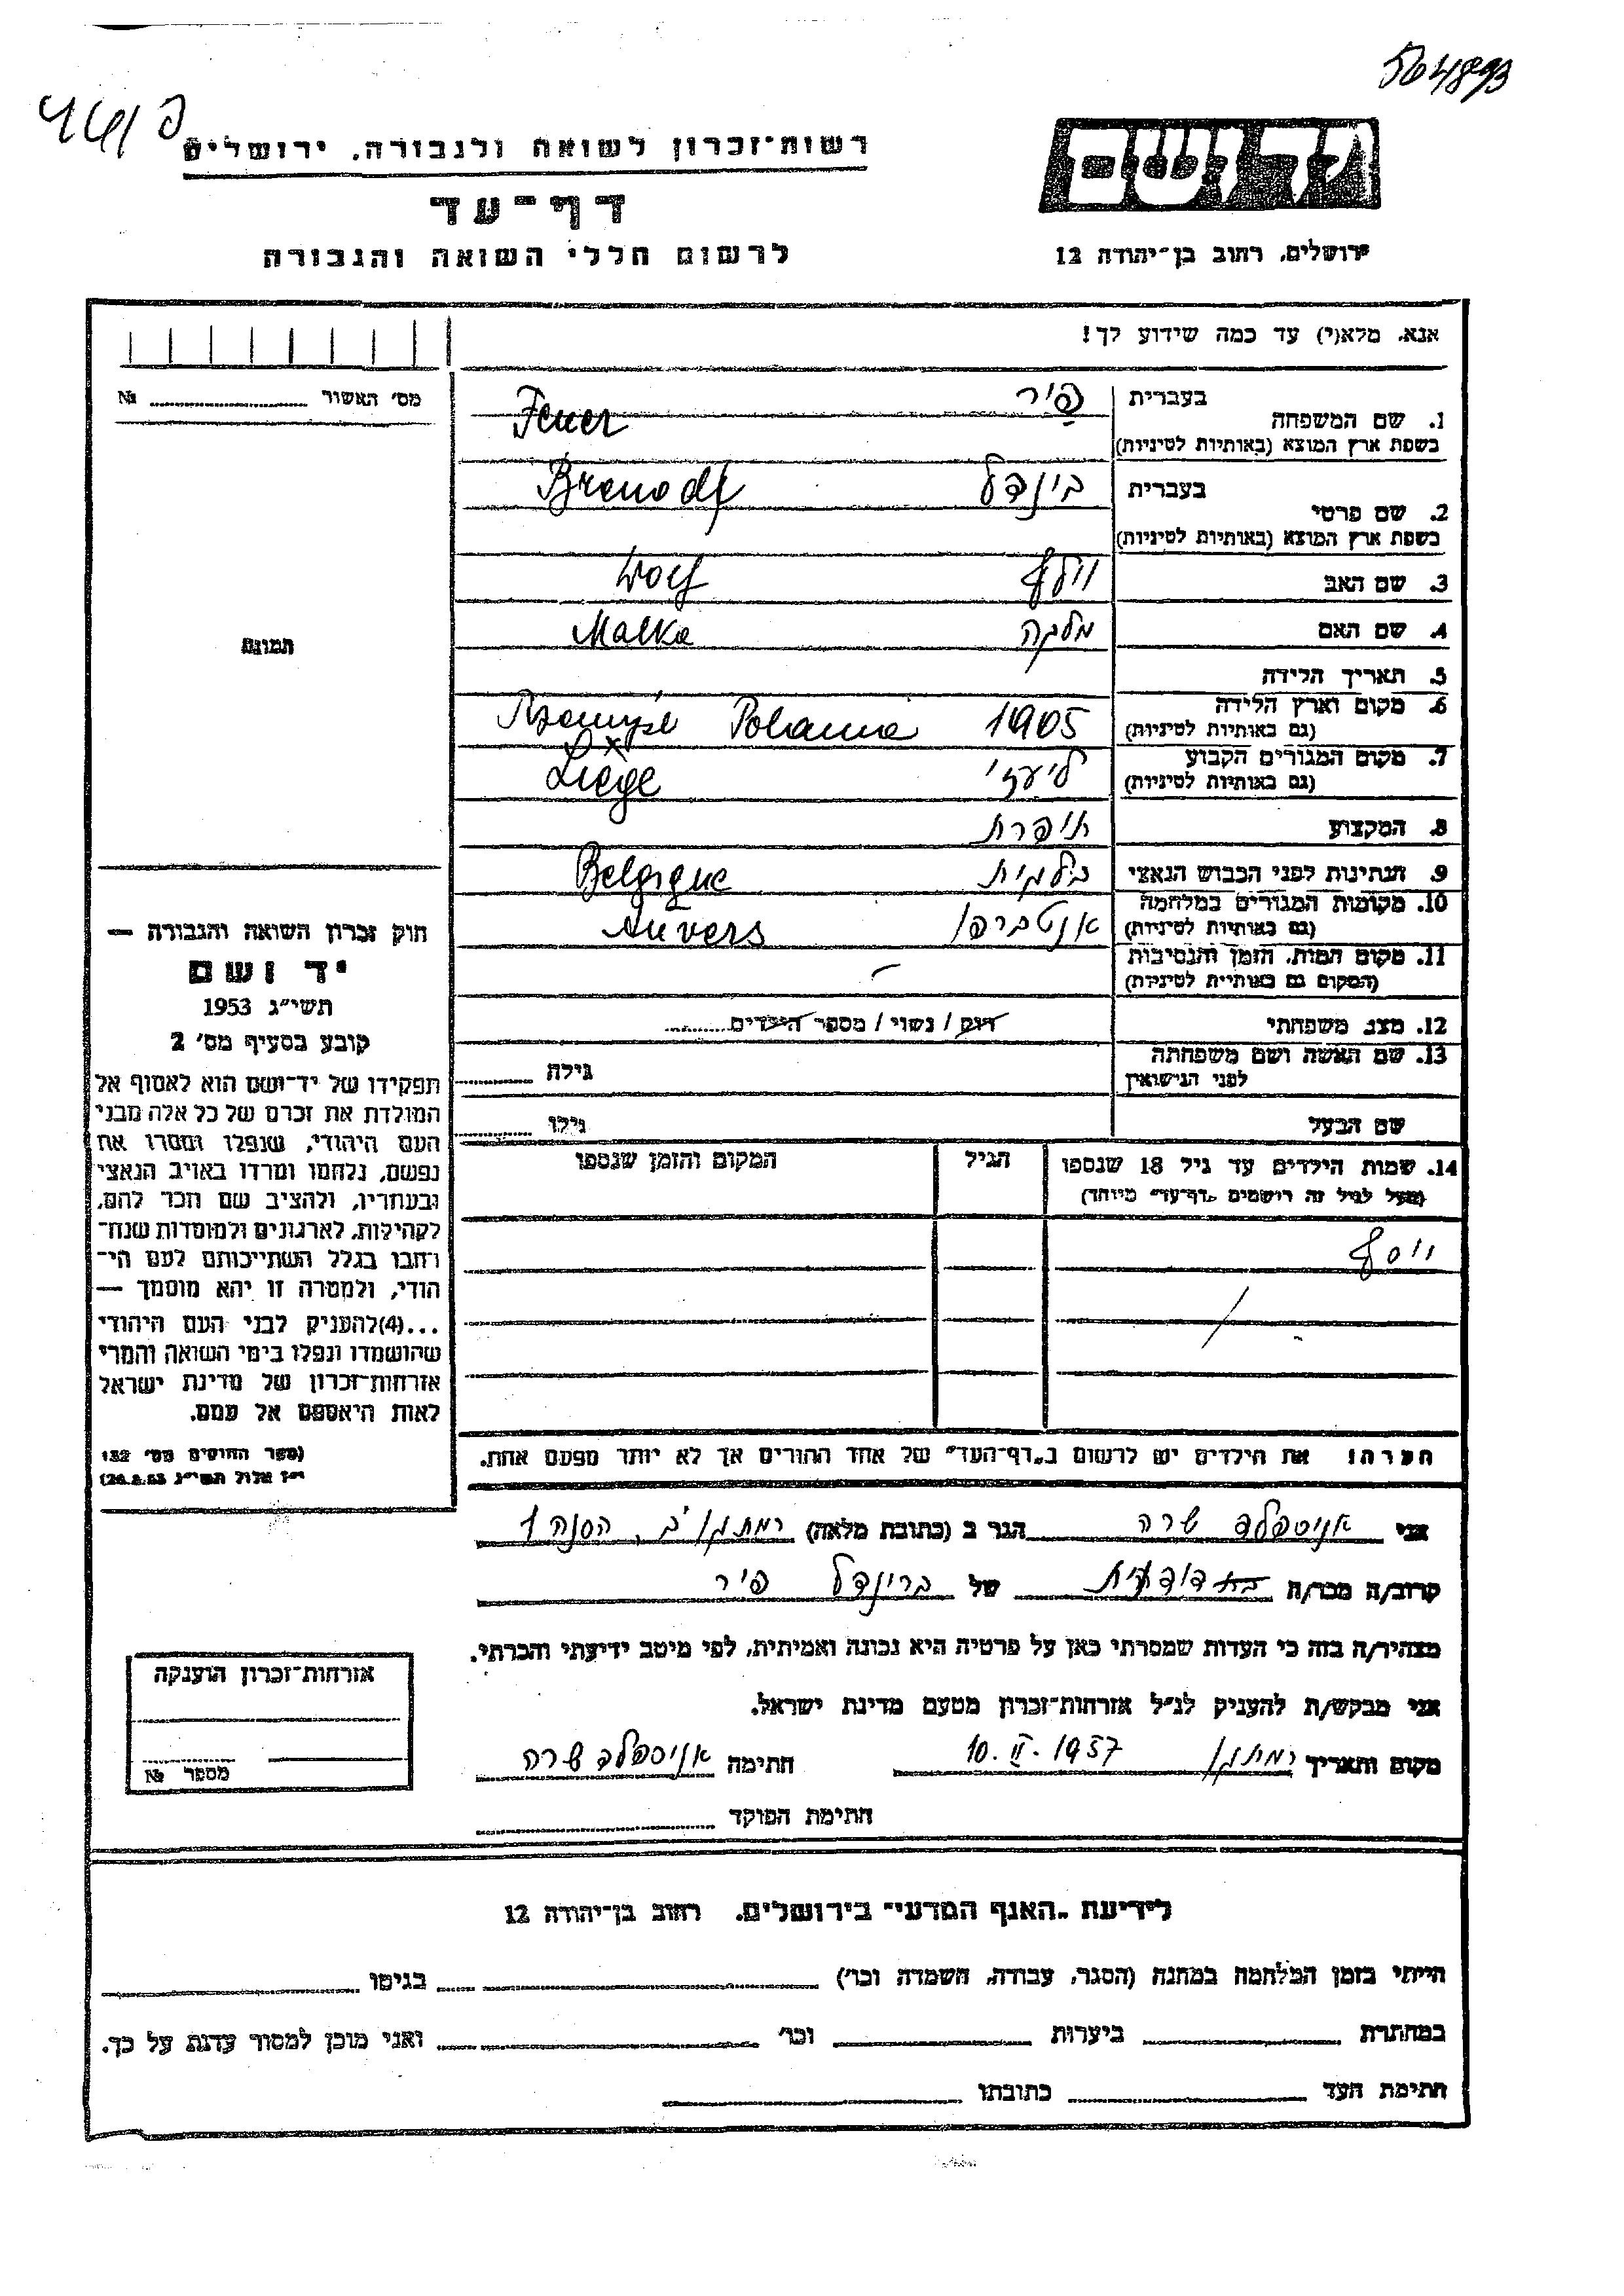 564893
רשות־זכרון לשואה ולגבורה, ירושלים
דף־עד
לרשום חללי השואה והגבורה
ירושלים, רחוב בן־יהודה 12
אנא, מלא(י) עד כמה שידוע לך!
מס' האשור № 
1. שם המשפחה בעברית פיר
בשפת ארץ המוצא (באותיות לטיניות) Feuer
2. שם פרטי בעברית בינדל
בשפת ארץ המוצא (באותיות לטיניות)
3. שם האב וולף Wolf
4. שם האם מלכה Malka
5. תאריך הלידה
6. מקום וארץ הלידה 1905
(גם באותיות לטיניות)
7. מקום המגורים הקבוע
(גם באותיות לטיניות) Liege
8. המקצוע תופרת
9. הנתינות לפני הכבוש הנאצי בלגית Belgique
10. מקומות המגורים במלחמה
(גם באותיות לטיניות) אנטברפן Anvers
11. מקום המות, הזמן והנסיבות
(המקום גם באותיות לטיניות)
12. מצב משפחתי רווק / נשוי / מספר הילדים
13. שם האשה ושם משפחתה גילה
לפני הנישואין
שם הבעל גילו
14. שמות הילדים עד גיל 18 שנספו הגיל המקום והזמן שנספו
(מעל לגיל זה רושמים „דף־עד" מיוחד)
יוסף
הערה: את הילדים יש לרשום ב„דף־העד" של אחד ההורים אך לא יותר מפעם אחת.
תמונה
חוק זכרון השואה והגבורה —
יד ושם
תשי"ג 1953
קובע בסעיף מס' 2
תפקידו של יד־ושם הוא לאסוף אל
המולדת את זכרם של כל אלה מבני
העם היהודי, שנפלו ומסרו את
נפשם, נלחמו ומרדו באויב הנאצי
ובעוזריו, ולהציב שם וזכר להם,
לקהילות, לארגונים ולמוסדות שנח־
רבו בגלל השתייכותם לעם הי־
הודי, ולמטרה זו יהא מוסמך —
...(4) להעניק לבני העם היהודי
שהושמדו ונפלו בימי השואה והמרי
אזרחות־זכרון של מדינת ישראל
לאות היאספם אל עמם.
(ספר החוקים מס' 132
י"ז אלול תשי"ג 26.8.53)
אני שרה הגר ב (כתובת מלאה) רמת גן ב', הסנה 1
קרוב/ה מכר/ה של ברינדל פיר
מצהיר/ה בזה כי העדות שמסרתי כאן על פרטיה היא נכונה ואמיתית, לפי מיטב ידיעתי והכרתי.
אני מבקש/ת להעניק לנ"ל אזרחות־זכרון מטעם מדינת ישראל.
מקום ותאריך רמת גן 10. II. 1957 חתימה שרה
חתימת הפוקד
אזרחות־זכרון הוענקה
מספר №
לידיעת „האגף המדעי" בירושלים, רחוב בן־יהודה 12
הייתי בזמן המלחמה במחנה (הסגר, עבודה, השמדה וכו') בגיטו
במחתרת ביערות וכו' ואני מוכן למסור עדות על כך.
חתימת העד כתובתו